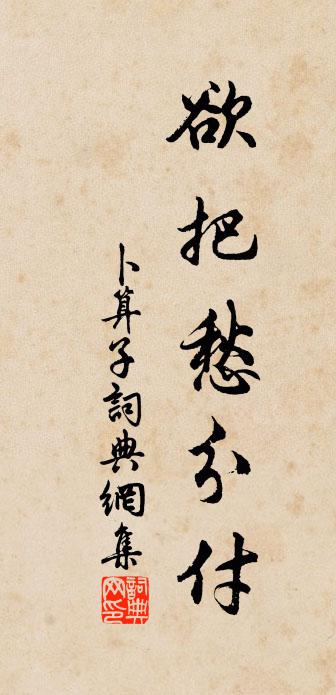 欲把愁分付
卜算子詞典網集
詞典網印